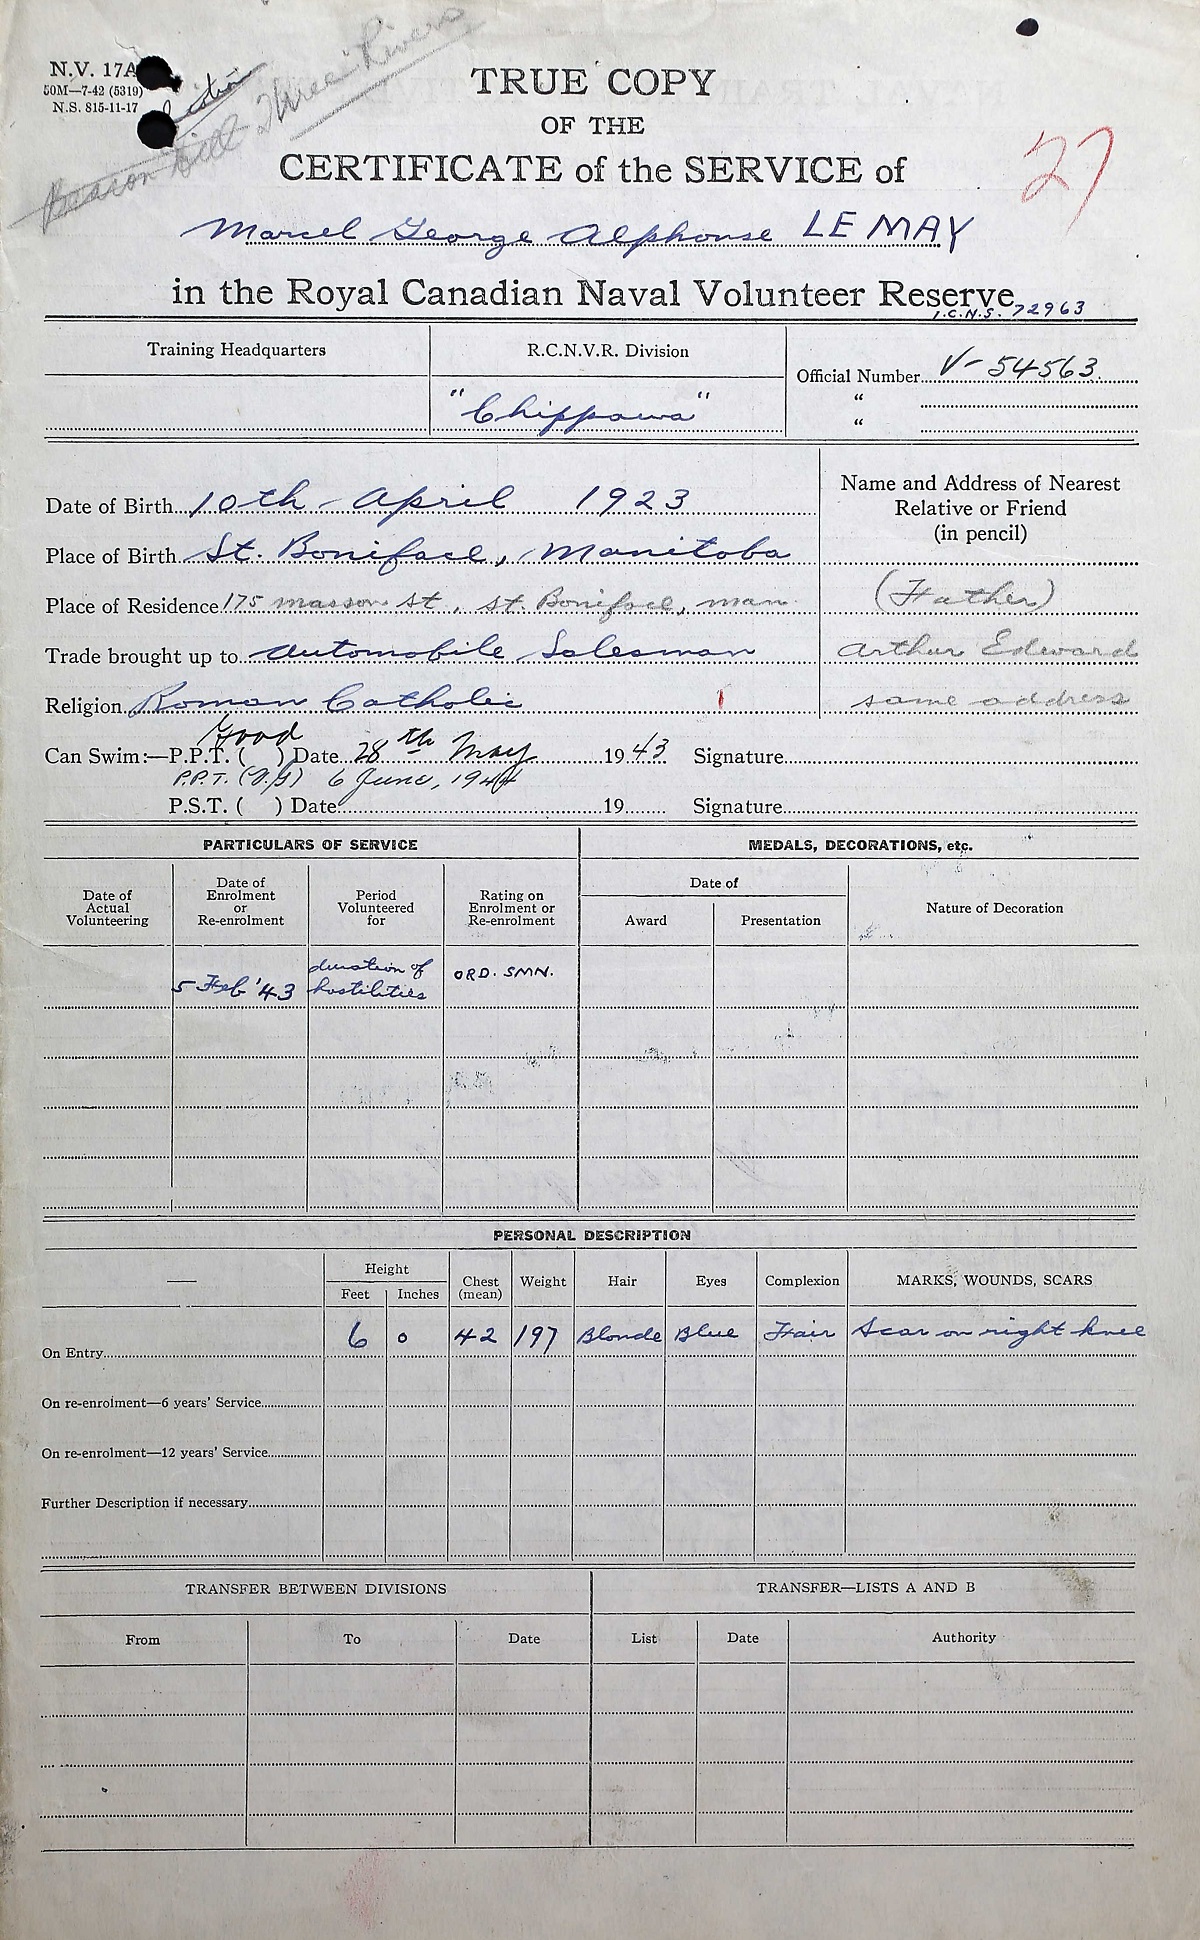 N.V. 17A
50M—7-42 (5319)
N.S. 815-11-17
Beacon Hill Three Rivers
TRUE COPY
OF THE
CERTIFICATE of the SERVICE of
27
Marcel George Alphonse LE MAY
in the Royal Canadian Naval Volunteer Reserve
I.C.N.S. 72963
Training Headquarters
R.C.N.V.R. Division
"Chippawa"
Official Number V-54563
"
"
Date of Birth 10th April 1923
Place of Birth St. Boniface, Manitoba
Place of Residence 175 Masson St, St. Boniface, Man
Trade brought up to Automobile Salesman
Religion Roman Catholic
Name and Address of Nearest
Relative or Friend
(in pencil)
(Father)
Arthur Edward
same address
Good
Can Swim:—P.P.T. ( ) Date 28th May 1943 Signature
P.P.T. (V.G) 6 June, 1944
P.S.T. ( ) Date 19 Signature
PARTICULARS OF SERVICE
MEDALS, DECORATIONS, etc.
Date of Actual Volunteering
Date of Enrolment or Re-enrolment
Period Volunteered for
Rating on Enrolment or Re-enrolment
Date of
Award
Presentation
Nature of Decoration
5 Feb '43 duration of hostilities ORD. SMN.
PERSONAL DESCRIPTION
—
Height
Feet
Inches
Chest (mean)
Weight
Hair
Eyes
Complexion
MARKS, WOUNDS, SCARS
On Entry 6 0 42 197 Blonde Blue Fair Scar on right knee
On re-enrolment—6 years' Service
On re-enrolment—12 years' Service
Further Description if necessary
TRANSFER BETWEEN DIVISIONS
TRANSFER—LISTS A AND B
From
To
Date
List
Date
Authority